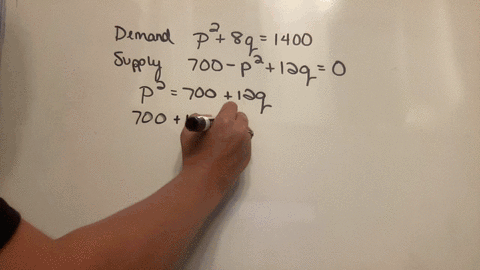 Demand p² + 8q = 1400
Supply 700 - p² + 12q = 0
p² = 700 + 12q
700 +